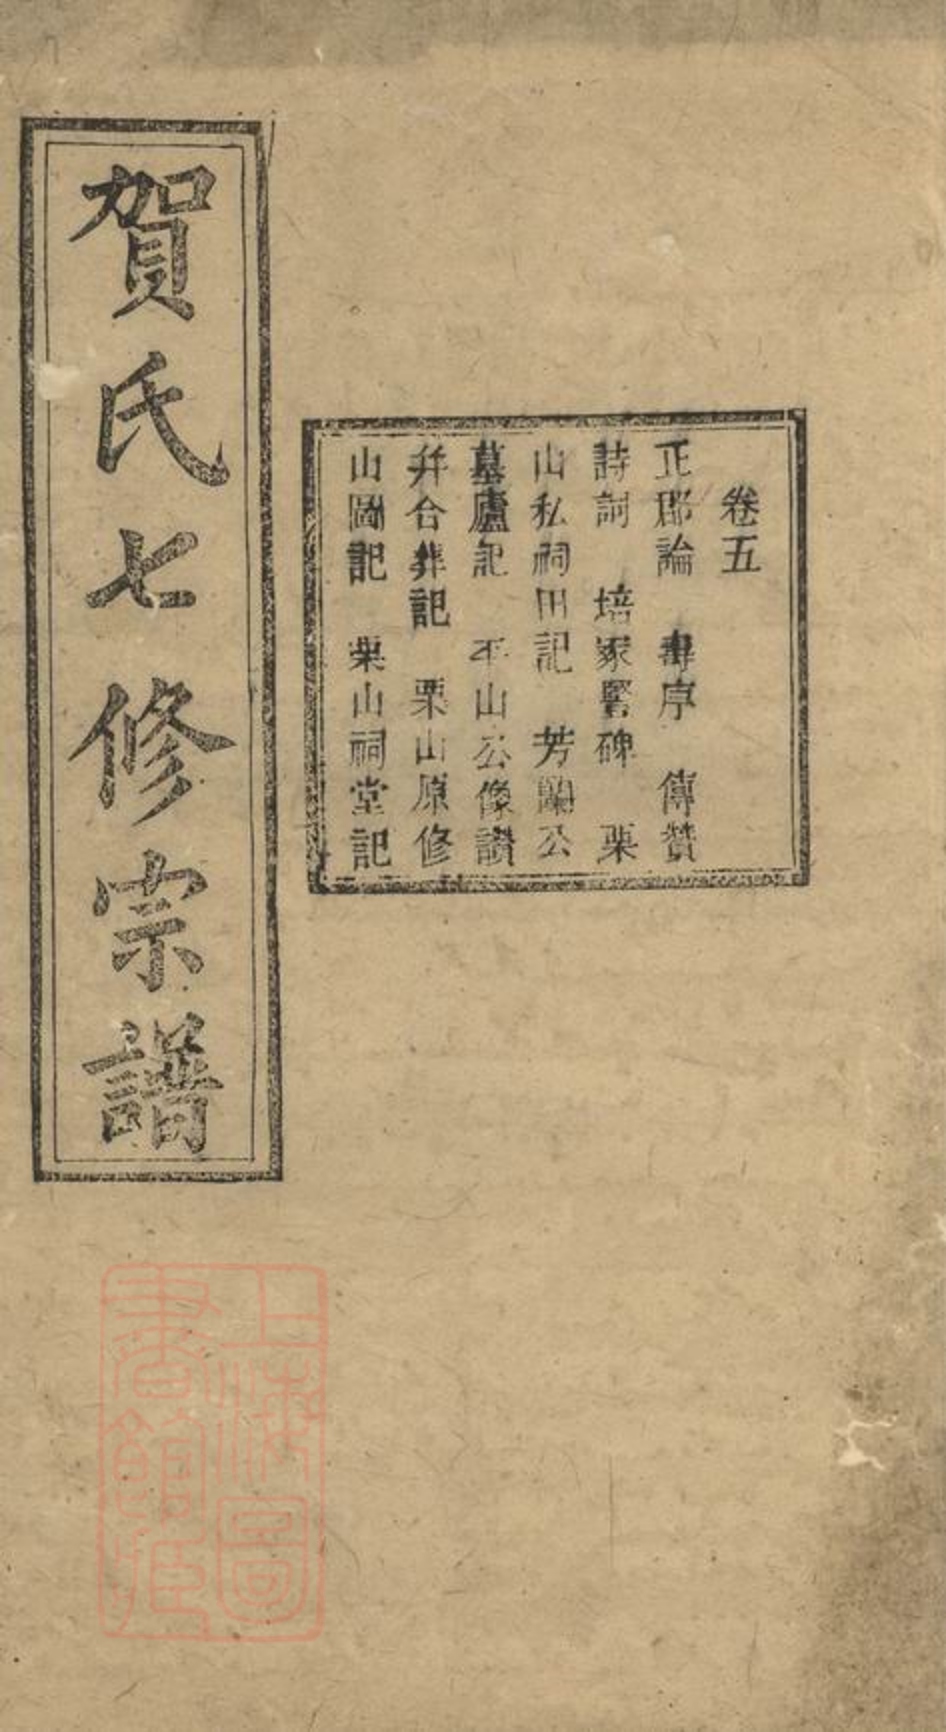 賀氏七修宗譜
卷五
正郡論 壽序 傳贊
詩詞 培冢碑 栗
山私祠田記 芳蘭公
墓廬記 平山公像讃
幷合葬記 栗山原修
山圖記 栗山祠堂記
上海圖
書館藏